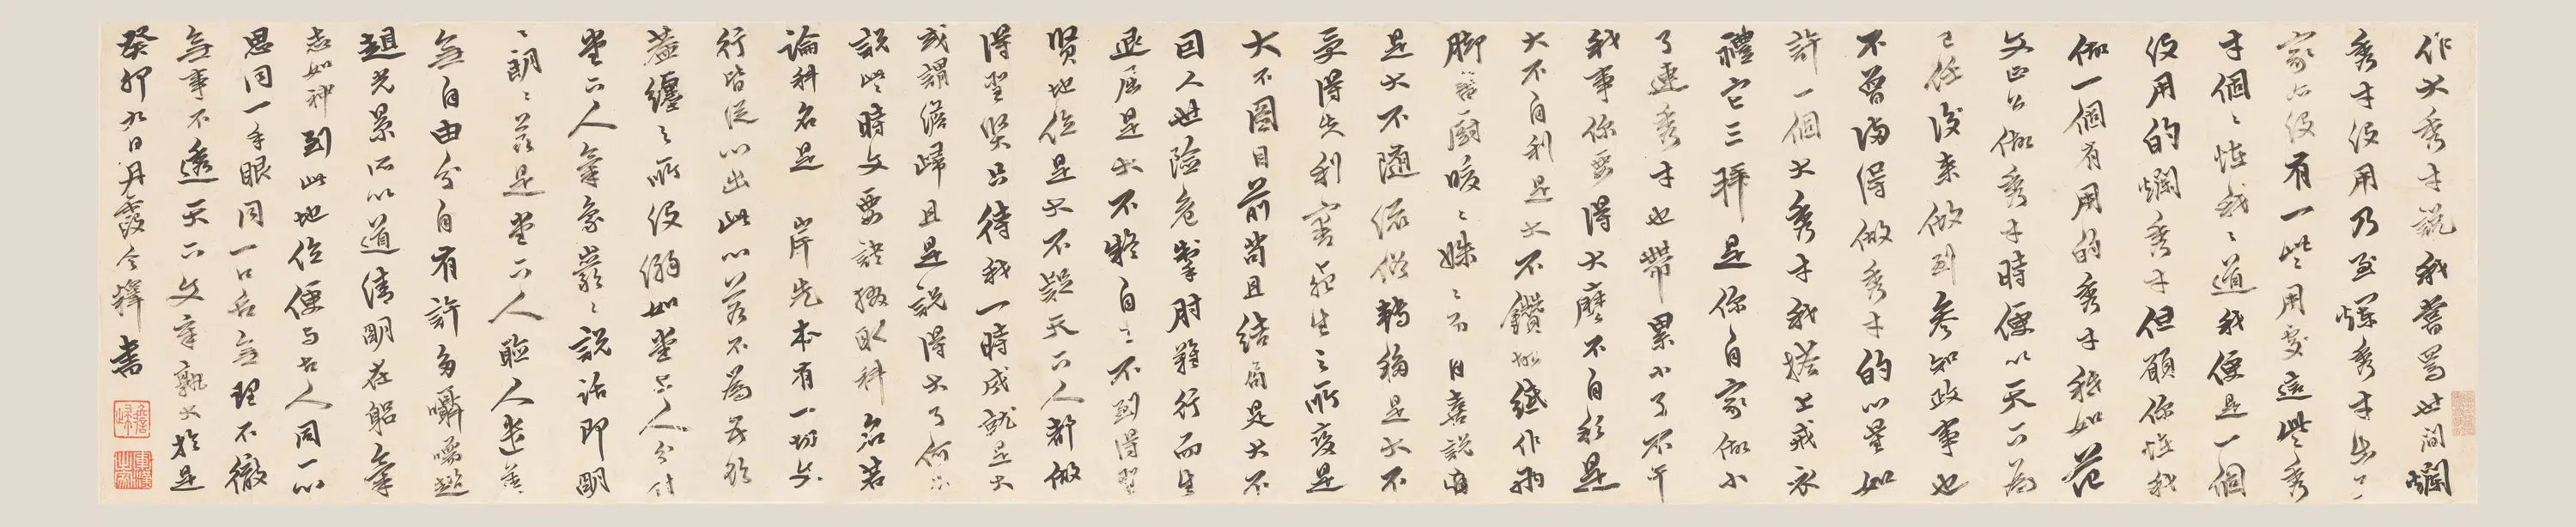 作大秀才說我嘗罵世間爛
秀才沒用乃至爛秀才出
家亦沒有一些用處這些秀
才個個怪我我道我便是一個
沒用的爛秀才但願你怪我
做一個有用的秀才秖如范
文正公做秀才時便以天下為
己任後來做到參知政事也
不曾滿得做秀才的心量如
許一個大秀才我搭上戒衣
禮它三拜是你自家做小
了連秀才也帶累小了不干
我事你要得大麼不自私是
大不自利是大不鑽 絨作
腳 廚暖暖姝姝而自喜說
是大不隨流俗轉移是大不
受得失利害死生之所變是
大不圖目前苟且結局是大不
因人世險危掣肘難行而生
退屈是大不輕自 不到得聖
賢地位是大不疑天下人都做
得聖賢只待我一時成就是大
或謂澹歸且是說得大了何不
說些時文要訣掇取科名若
論科名是 岸先本有一切文
行皆從心出此心若不為五欲
蓋纏之所沒溺如堂上人分付
堂下人氣象嚴嚴說話即明
明朗朗若是堂下人臉人差
無自由分自有許多囁嚅趑
趄光景所以道清明在躬氣
志如神到此地位便與古人同一心
思同一手眼同一口舌無理不徹
無事不透天下文章孰大於是
癸卯九日丹霞今釋書